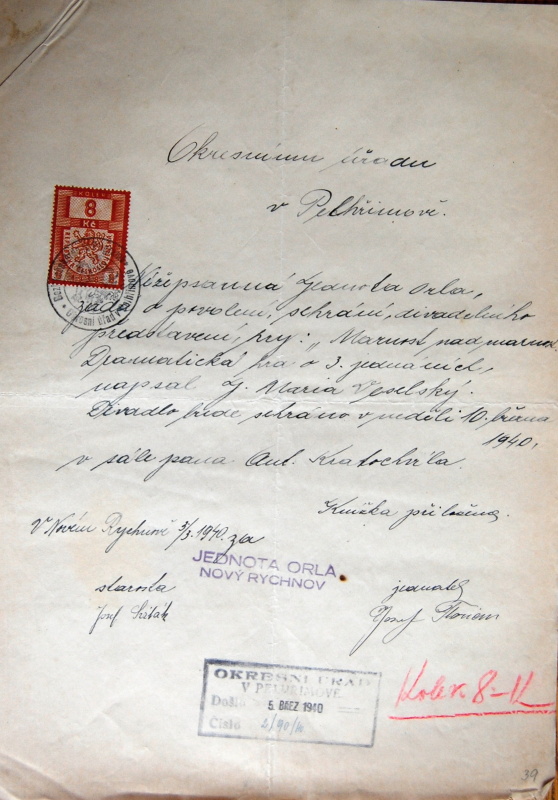 Okresnímu úřadu
v Pelhřimově.
KOLEK
8
Kč
Nížepsaná Jednota Orla,
žádá o povolení, sehrání, divadelního
představení, hry: „Marnost, nad marnost
Dramatická hra o 3. jednáních,
napsal J. Maria Veselský.
Divadlo bude sehráno v neděli 10. března
1940,
v sále pana Ant. Kratochvíla.
Knížka přiložena.
V Novém Rychnově 3/3. 1940. za
JEDNOTA ORLA
NOVÝ RYCHNOV
starosta
jednatel
Josef
Josef
OKRESNÍ ÚŘAD
V PELHŘIMOVĚ
Došlo 5. BŘEZ 1940
Číslo
Kolek 8-K
39